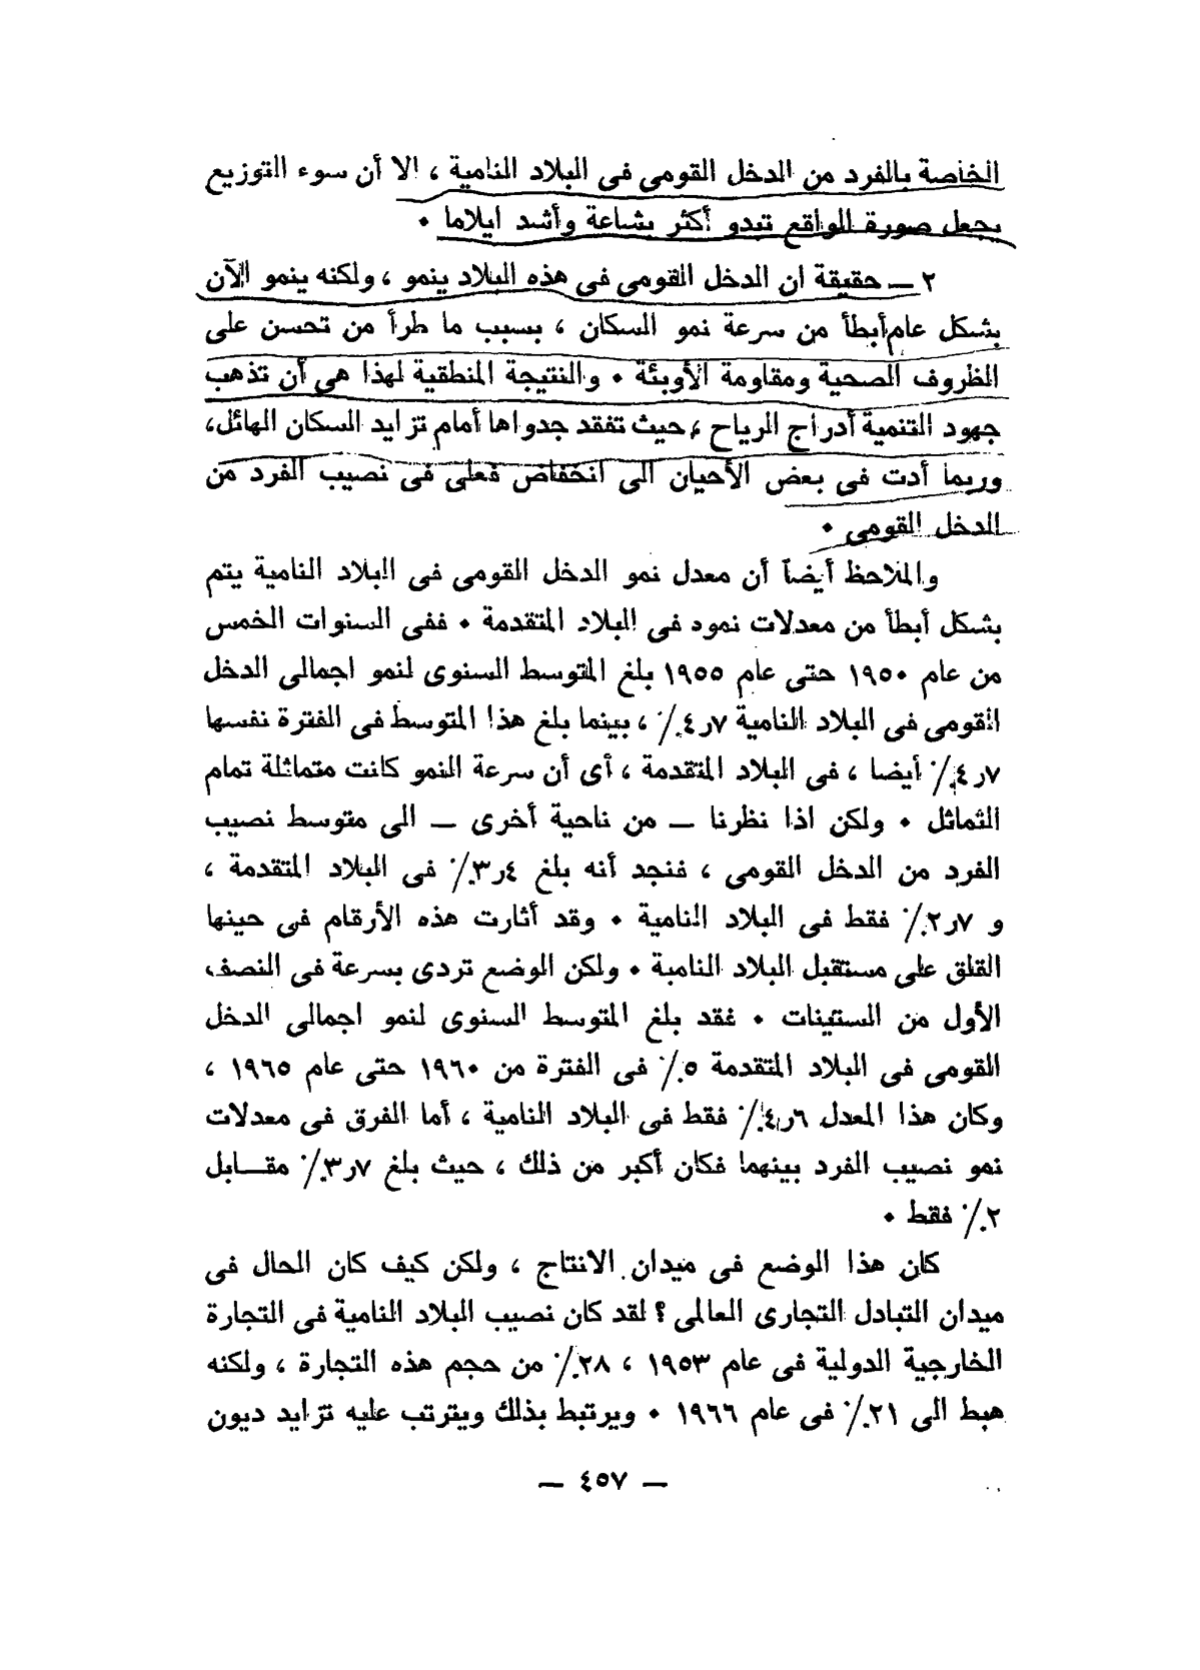 الخاصة بالفرد من الدخل القومى فى البلاد النامية ، الا أن سوء التوزيع
يجعل صورة الواقع تبدو أكثر بشاعة وأشد ايلاما •
٢ ــ حقيقة ان الدخل القومى فى هذه البلاد ينمو ، ولكنه ينمو الآن
بشكل عام أبطأ من سرعة نمو السكان ، بسبب ما طرأ من تحسن على
الظروف الصحية ومقاومة الأوبئة • والنتيجة المنطقية لهذا هى أن تذهب
جهود التنمية أدراج الرياح ، حيث تفقد جدواها أمام تزايد السكان الهائل،
وربما أدت فى بعض الأحيان الى انخفاض فعلى فى نصيب الفرد من
الدخل القومى •
والملاحظ أيضاً أن معدل نمو الدخل القومى فى البلاد النامية يتم
بشكل أبطأ من معدلات نموه فى البلاد المتقدمة • ففى السنوات الخمس
من عام ١٩٥٠ حتى عام ١٩٥٥ بلغ المتوسط السنوى لنمو اجمالى الدخل
القومى فى البلاد النامية ٧ر٤٪ ، بينما بلغ هذا المتوسط فى الفترة نفسها
٧ر٤٪ أيضا ، فى البلاد المتقدمة ، أى أن سرعة النمو كانت متماثلة تمام
التماثل • ولكن اذا نظرنا ــ من ناحية أخرى ــ الى متوسط نصيب
الفرد من الدخل القومى ، فنجد أنه بلغ ٤ر٣٪ فى البلاد المتقدمة ،
و ٧ر٢٪ فقط فى البلاد النامية • وقد أثارت هذه الأرقام فى حينها
القلق على مستقبل البلاد النامية • ولكن الوضع تردى بسرعة فى النصف
الأول من الستينات • فقد بلغ المتوسط السنوى لنمو اجمالى الدخل
القومى فى البلاد المتقدمة ٥٪ فى الفترة من ١٩٦٠ حتى عام ١٩٦٥ ،
وكان هذا المعدل ٦ر٤٪ فقط فى البلاد النامية ، أما الفرق فى معدلات
نمو نصيب الفرد بينهما فكان أكبر من ذلك ، حيث بلغ ٧ر٣٪ مقــابل
٢٪ فقط •
كان هذا الوضع فى ميدان الانتاج ، ولكن كيف كان الحال فى
ميدان التبادل التجارى العالمى ؟ لقد كان نصيب البلاد النامية فى التجارة
الخارجية الدولية فى عام ١٩٥٣ ، ٢٨٪ من حجم هذه التجارة ، ولكنه
هبط الى ٢١٪ فى عام ١٩٦٦ • ويرتبط بذلك ويترتب عليه تزايد ديون
ــ ٤٥٧ ــ